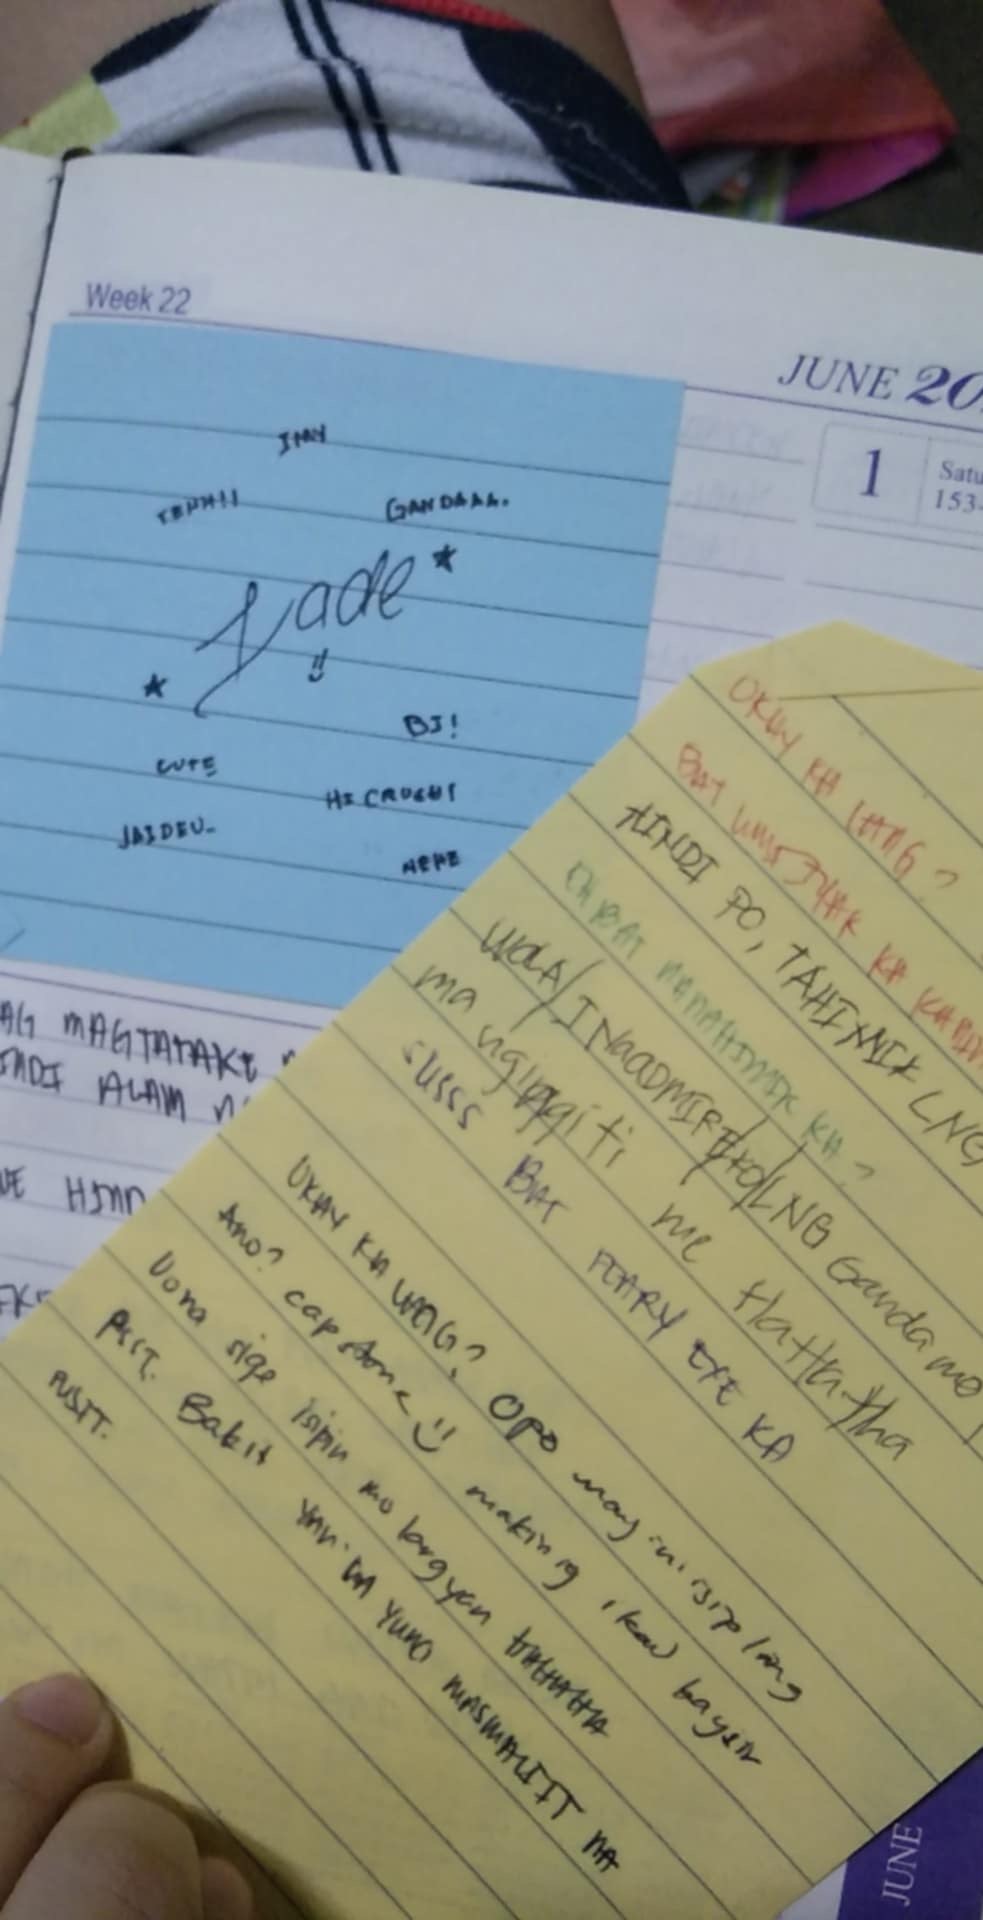 Week 22
JUNE 20
1
Satu
153-
IMY
GANDAAA.
Jade
BJ!
CUTE
HI CRUSH!
JAIDEU-
AG MAGTATAKE
ALAM
OKAY KA LANG?
BAT UMIIYAK KA
HINDI PO, TAHIMIK LNG
EH BAT NANAHIMIK KA?
WOLA/INAADMIRE KO LNG Ganda mo
ma ngingiti me HaHHa-Hha
SUSSS BAT TEARY EYE KA
OKAY KA LANG? Opo may iniisip lang
Ano? capstone making ikaw bayan
Dona sige isipin mo lang yan HAHAHHA
PSST. Bakit
YAN. DA YUNG MASMALIIT NA
PUSIT.
JUNE